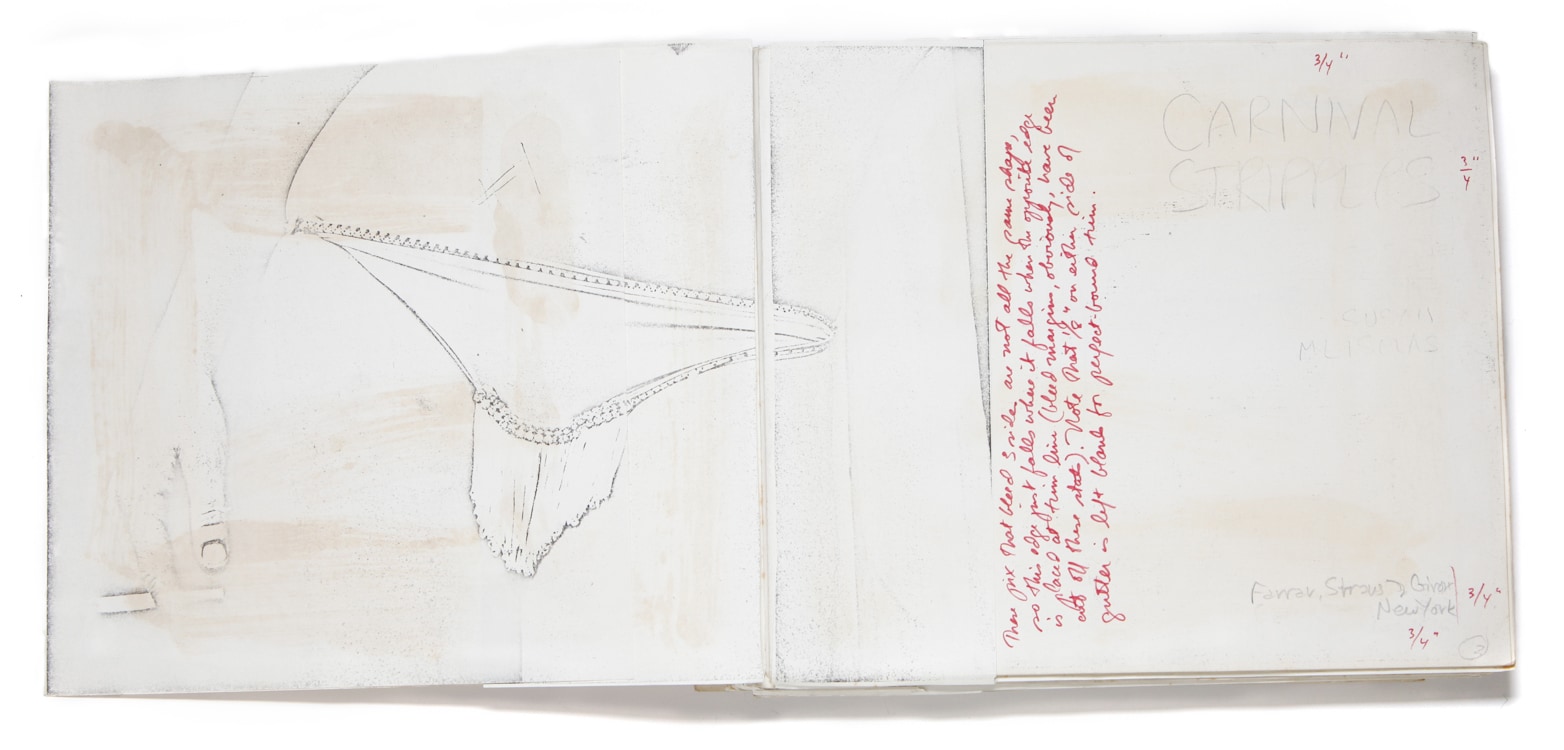 These pix that bleed 3 sides are not all the same shape,
so this edge just falls where it falls when the opposite edge
is placed at trim line (bleed margins, obviously, have been
cut off these stats). Note that 1/8" on either side of
gutter is left blank for perfect-bound trim.
3/4"
CARNIVAL
STRIPPERS
3/4"
SUSAN
MEISELAS
Farrar, Straus & Giroux
New York
3/4"
3/4"
3